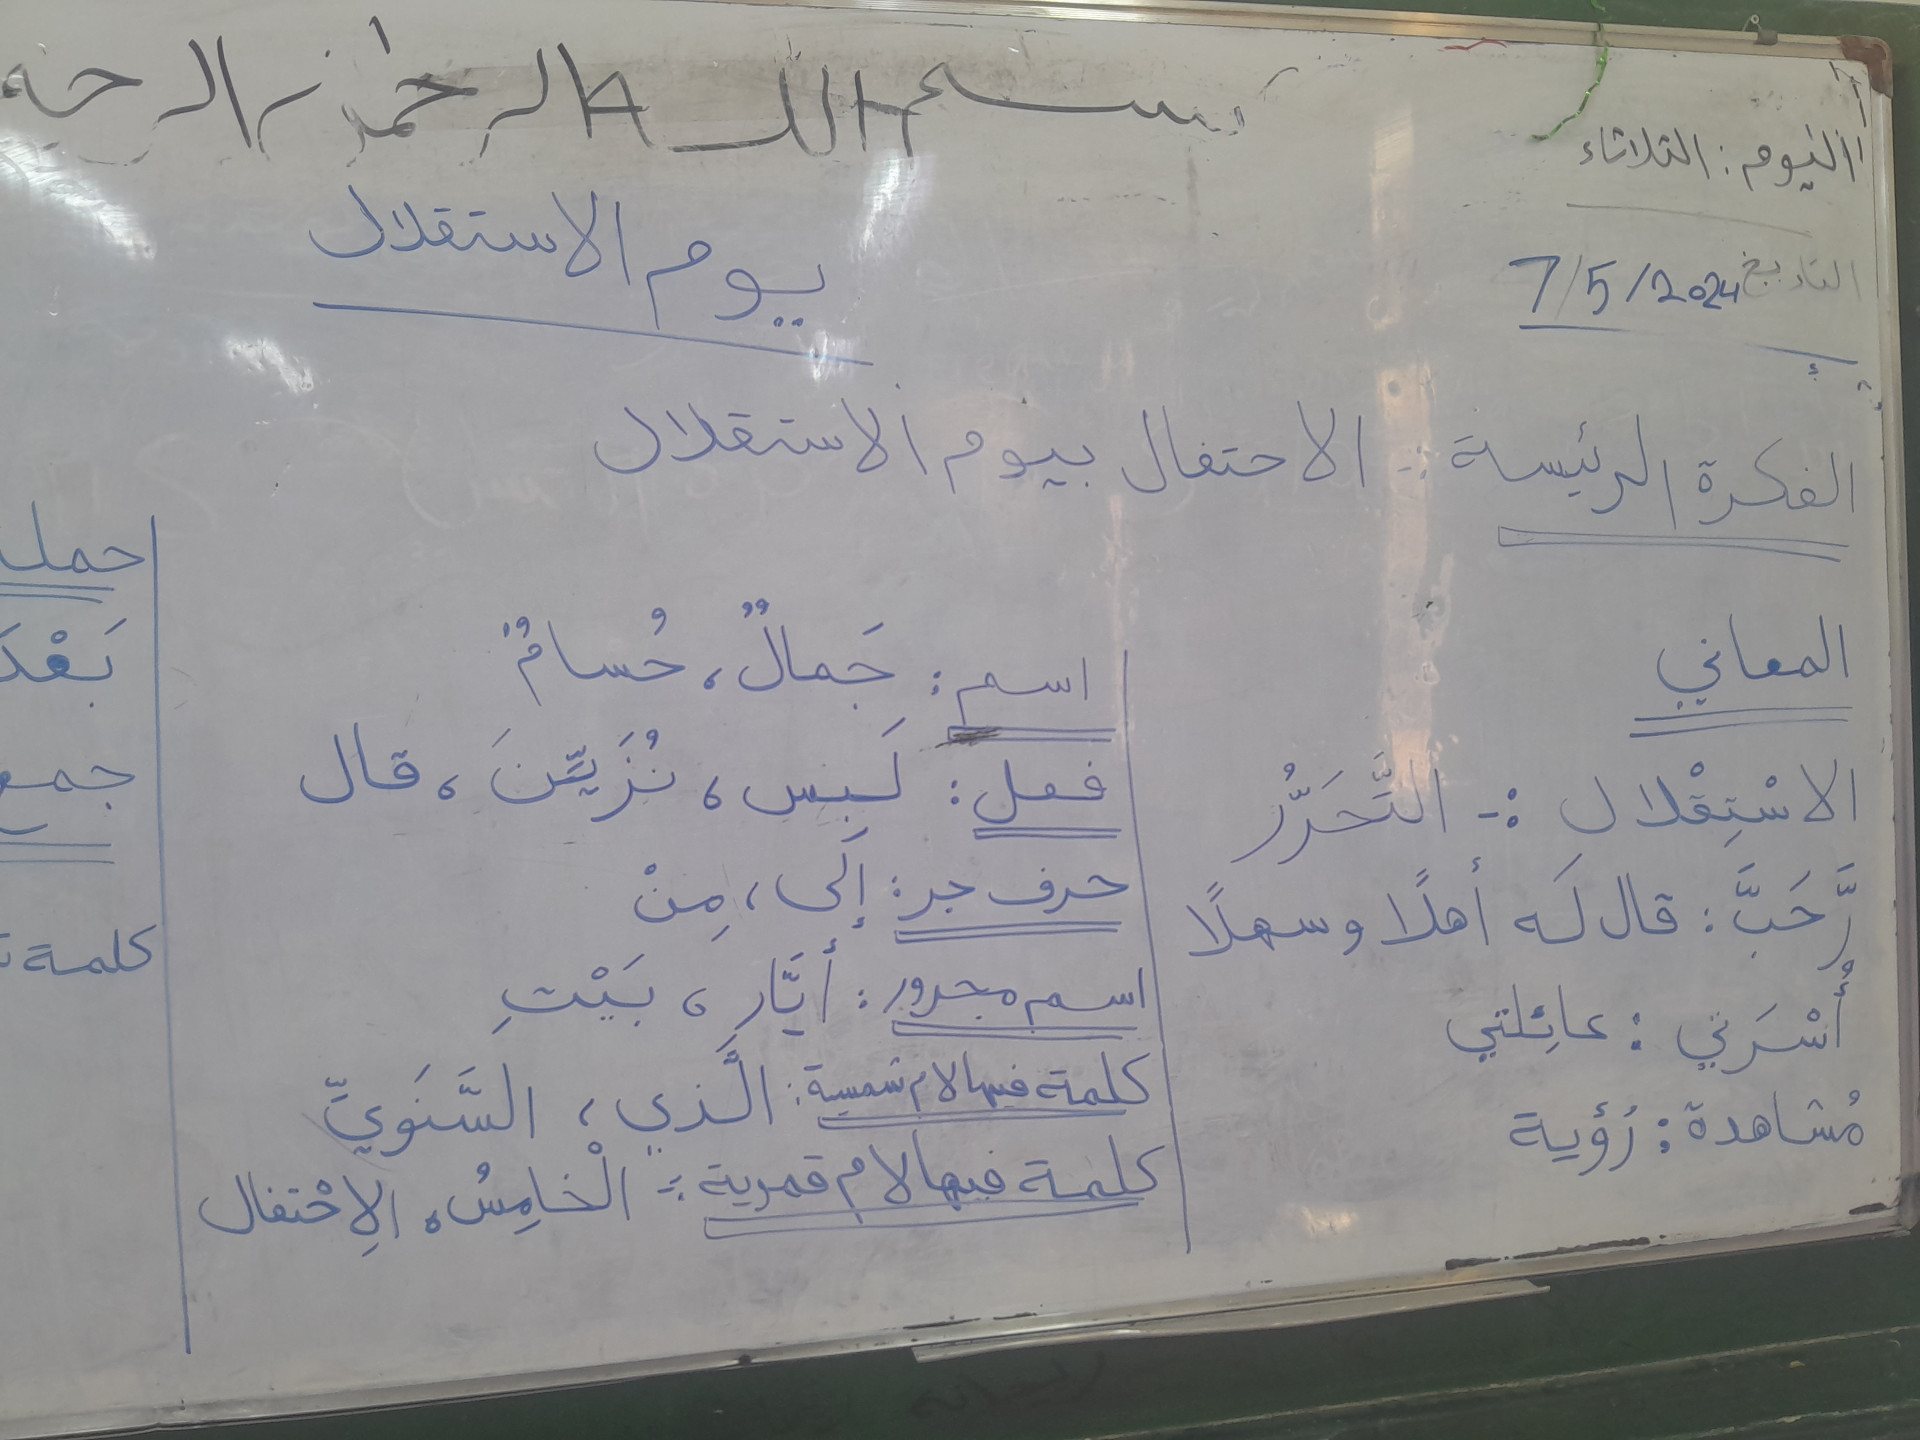 بسم الله الرحمن الرحيم
اليوم: الثلاثاء
التاريخ 7/5/2024
يوم الاستقلال
الفكرة الرئيسة :- الاحتفال بيوم الاستقلال
المعاني
الاسْتِقْلال :- التَّحَرُّر
رَّحَبَّ : قال لَه أهلًا وسهلًا
أُسْرَتي : عائِلتي
مُشاهدة : رُؤية
اسم : جَمالٌ ، حُسامٌ
فعل : لَبِس ، نُزَيِّنَ ، قال
حرف جر : إلَى ، مِنْ
اسم مجرور : أيَّارِ ، بَيْتِ
كلمة فيها لام شمسية : الَّذي ، السَّنَويِّ
كلمة فيها لام قمرية :- الْخامِسُ ، الِاحْتفال
جمع
كلمة